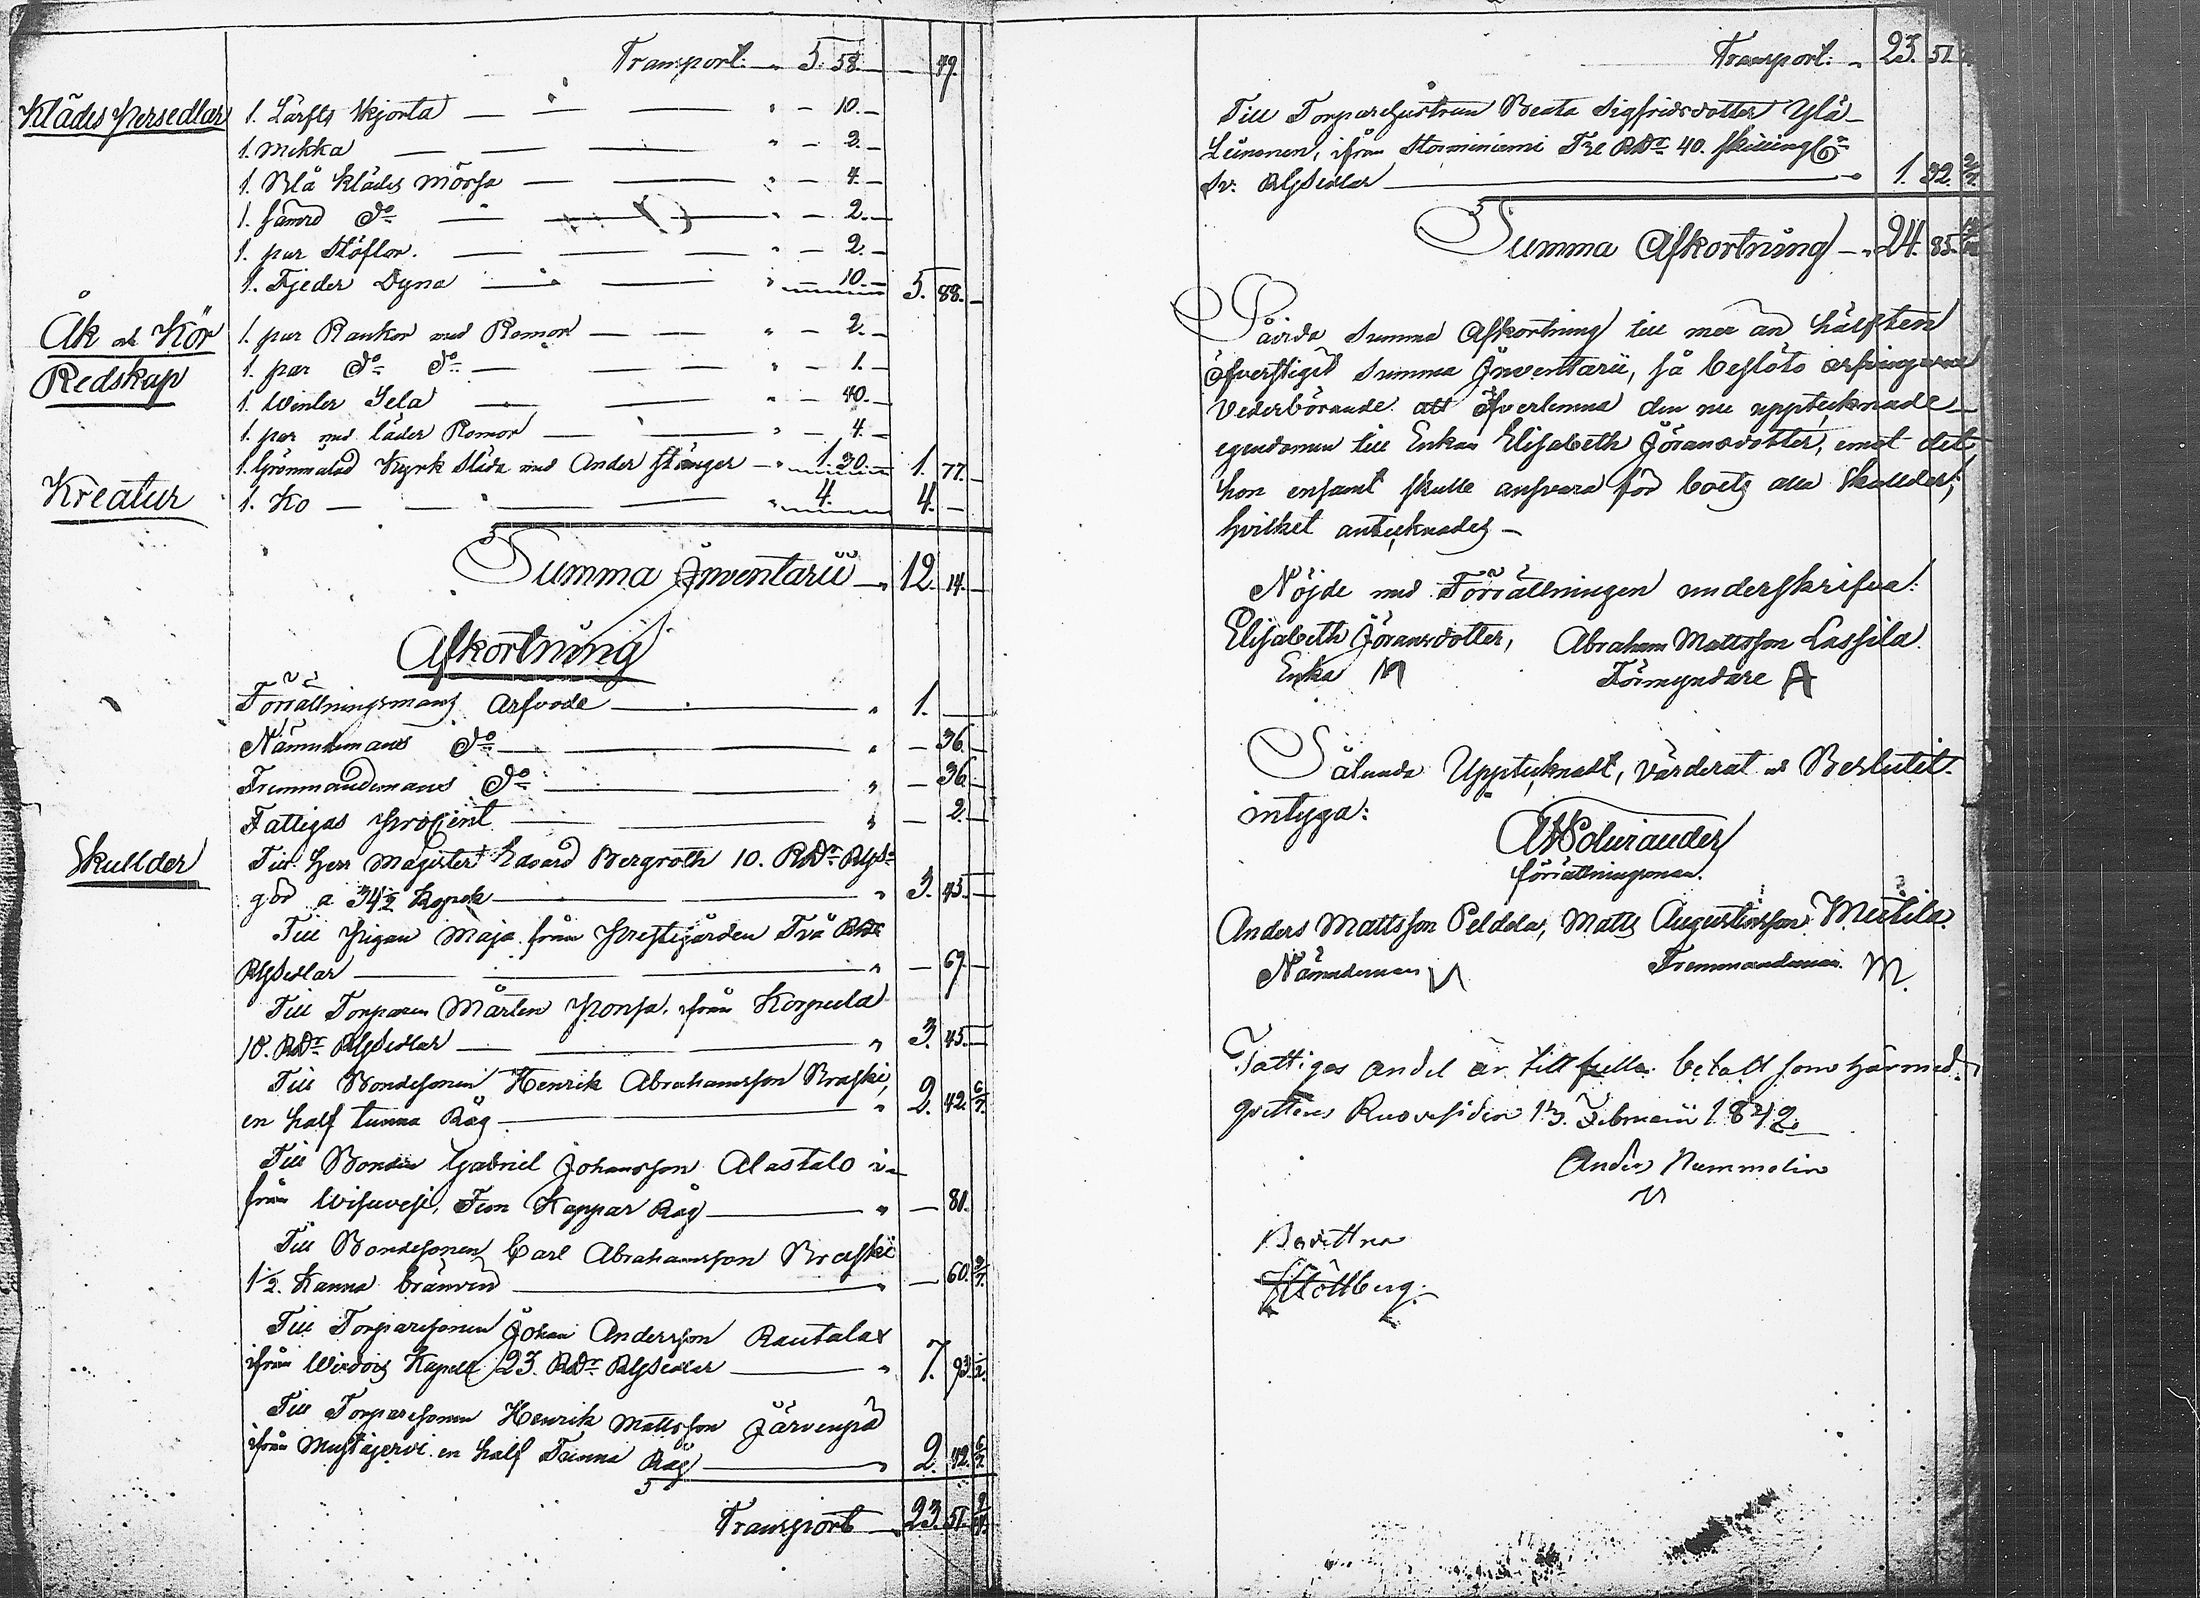 Transport. „ 5. 58. — 49.
Klädes Persedlar 1. Lärfts Skjorta — „ — 10. —
1. Mekka — „ — 2. —
1. Blå Klädes Mössa — „ — 4. —
1. sämre do — „ — 2. —
1. par Stöflor. — „ — 2. —
1. Fjeder Dyna — „ — 10. — 5. 88. —
Åk och Kör 1. par Rankor med Remor — „ — 2. —
Redskap 1. par do do — „ — 1. —
1. Winter Sela — „ — 40. —
1. par med läder Remor — „ — 4. —
1. Grönmålad Kyrk Släda med Ander stänger — „ 1. 30. — 1. 77. —
Kreatur 1. Ko — „ 4. — 4. —
Summa Inventarii — „ 12. 14. —
Afkortning
Förrättningsmans Arfvode — „ 1. —
Nämndemans do — „ — 36. —
Fremmandemans do — „ — 36. —
Fattigas Procent — „ — 2. —
Skullder Till Herr Magister Edvard Bergroth 10. RDr RGS
gör a 34½ Kopek — „ 3. 45. —
Till Pigan Maja från Prestgården Två RDr
RGSedlar — „ — 69. —
Till Torparen Mårten Ponsa, ifrån Korpula
10. RDr RGSedlar — „ 3. 45. —
Till Bondesonen Henrik Abrahamsson Braski,
en half tunna Råg — „ 2. 42. 6/7.
Till Bonden Gabriel Johansson Alastalo i-
från Wisuvesi, Fem Kappar Råg — „ — 81.
Till Bondesonen Carl Abrahamsson Braski
1½. Kanna bränvin — „ — 60. 5/7.
Till Torparesonen Johan Andersson Rautalax
ifrån Wirdois Kapell 23. RDr RGSedlar — „ 7. 93. ½.
Till Torparesonen Henrik Mattsson Järvenpä
ifrån Mustajervi en half Tunna Råg — „ 2. 42. 6/7.
Transport — „ 23. 51.
Transport. „ 23. 51.
Till Torparehustrun Beata Sigfridsdotter Ylä-
Leinonen, ifrån Storminiemi Tre RDr 40. skilling
Sv. RGSedlar — „ 1. 32. 2/7.
Summa Afkortning — „ 24. 85.
Såvida Summa Afkortning till mer än hälften
öfverstiget Summa Inventarii, så beslöto arfvingarne
Vederbörande att öfverlemna den nu upptecknade
egendomen till Enkan Elisabeth Jöransdotter, emot det
hon ensamt skulle ansvara för boets alla Skullder;
hvilket antecknades —
Nöjde med Förrättningen underskrifva:
Elisabeth Jöransdotter, Abraham Mattsson Lassila.
Enka Förmyndare A
Sålunda Upptecknadt, värderat och Beslutit
intyga:
förrättningsman.
Anders Mattsson Peldola, Matts Augustinsson Mutila.
Nämndeman Fremmandeman. M.
Fattiges andel är till fullo betalt som härmed
qvitteras Ruovesi den 13. Februarii 1842.
Anders Nummelin
Bevittna